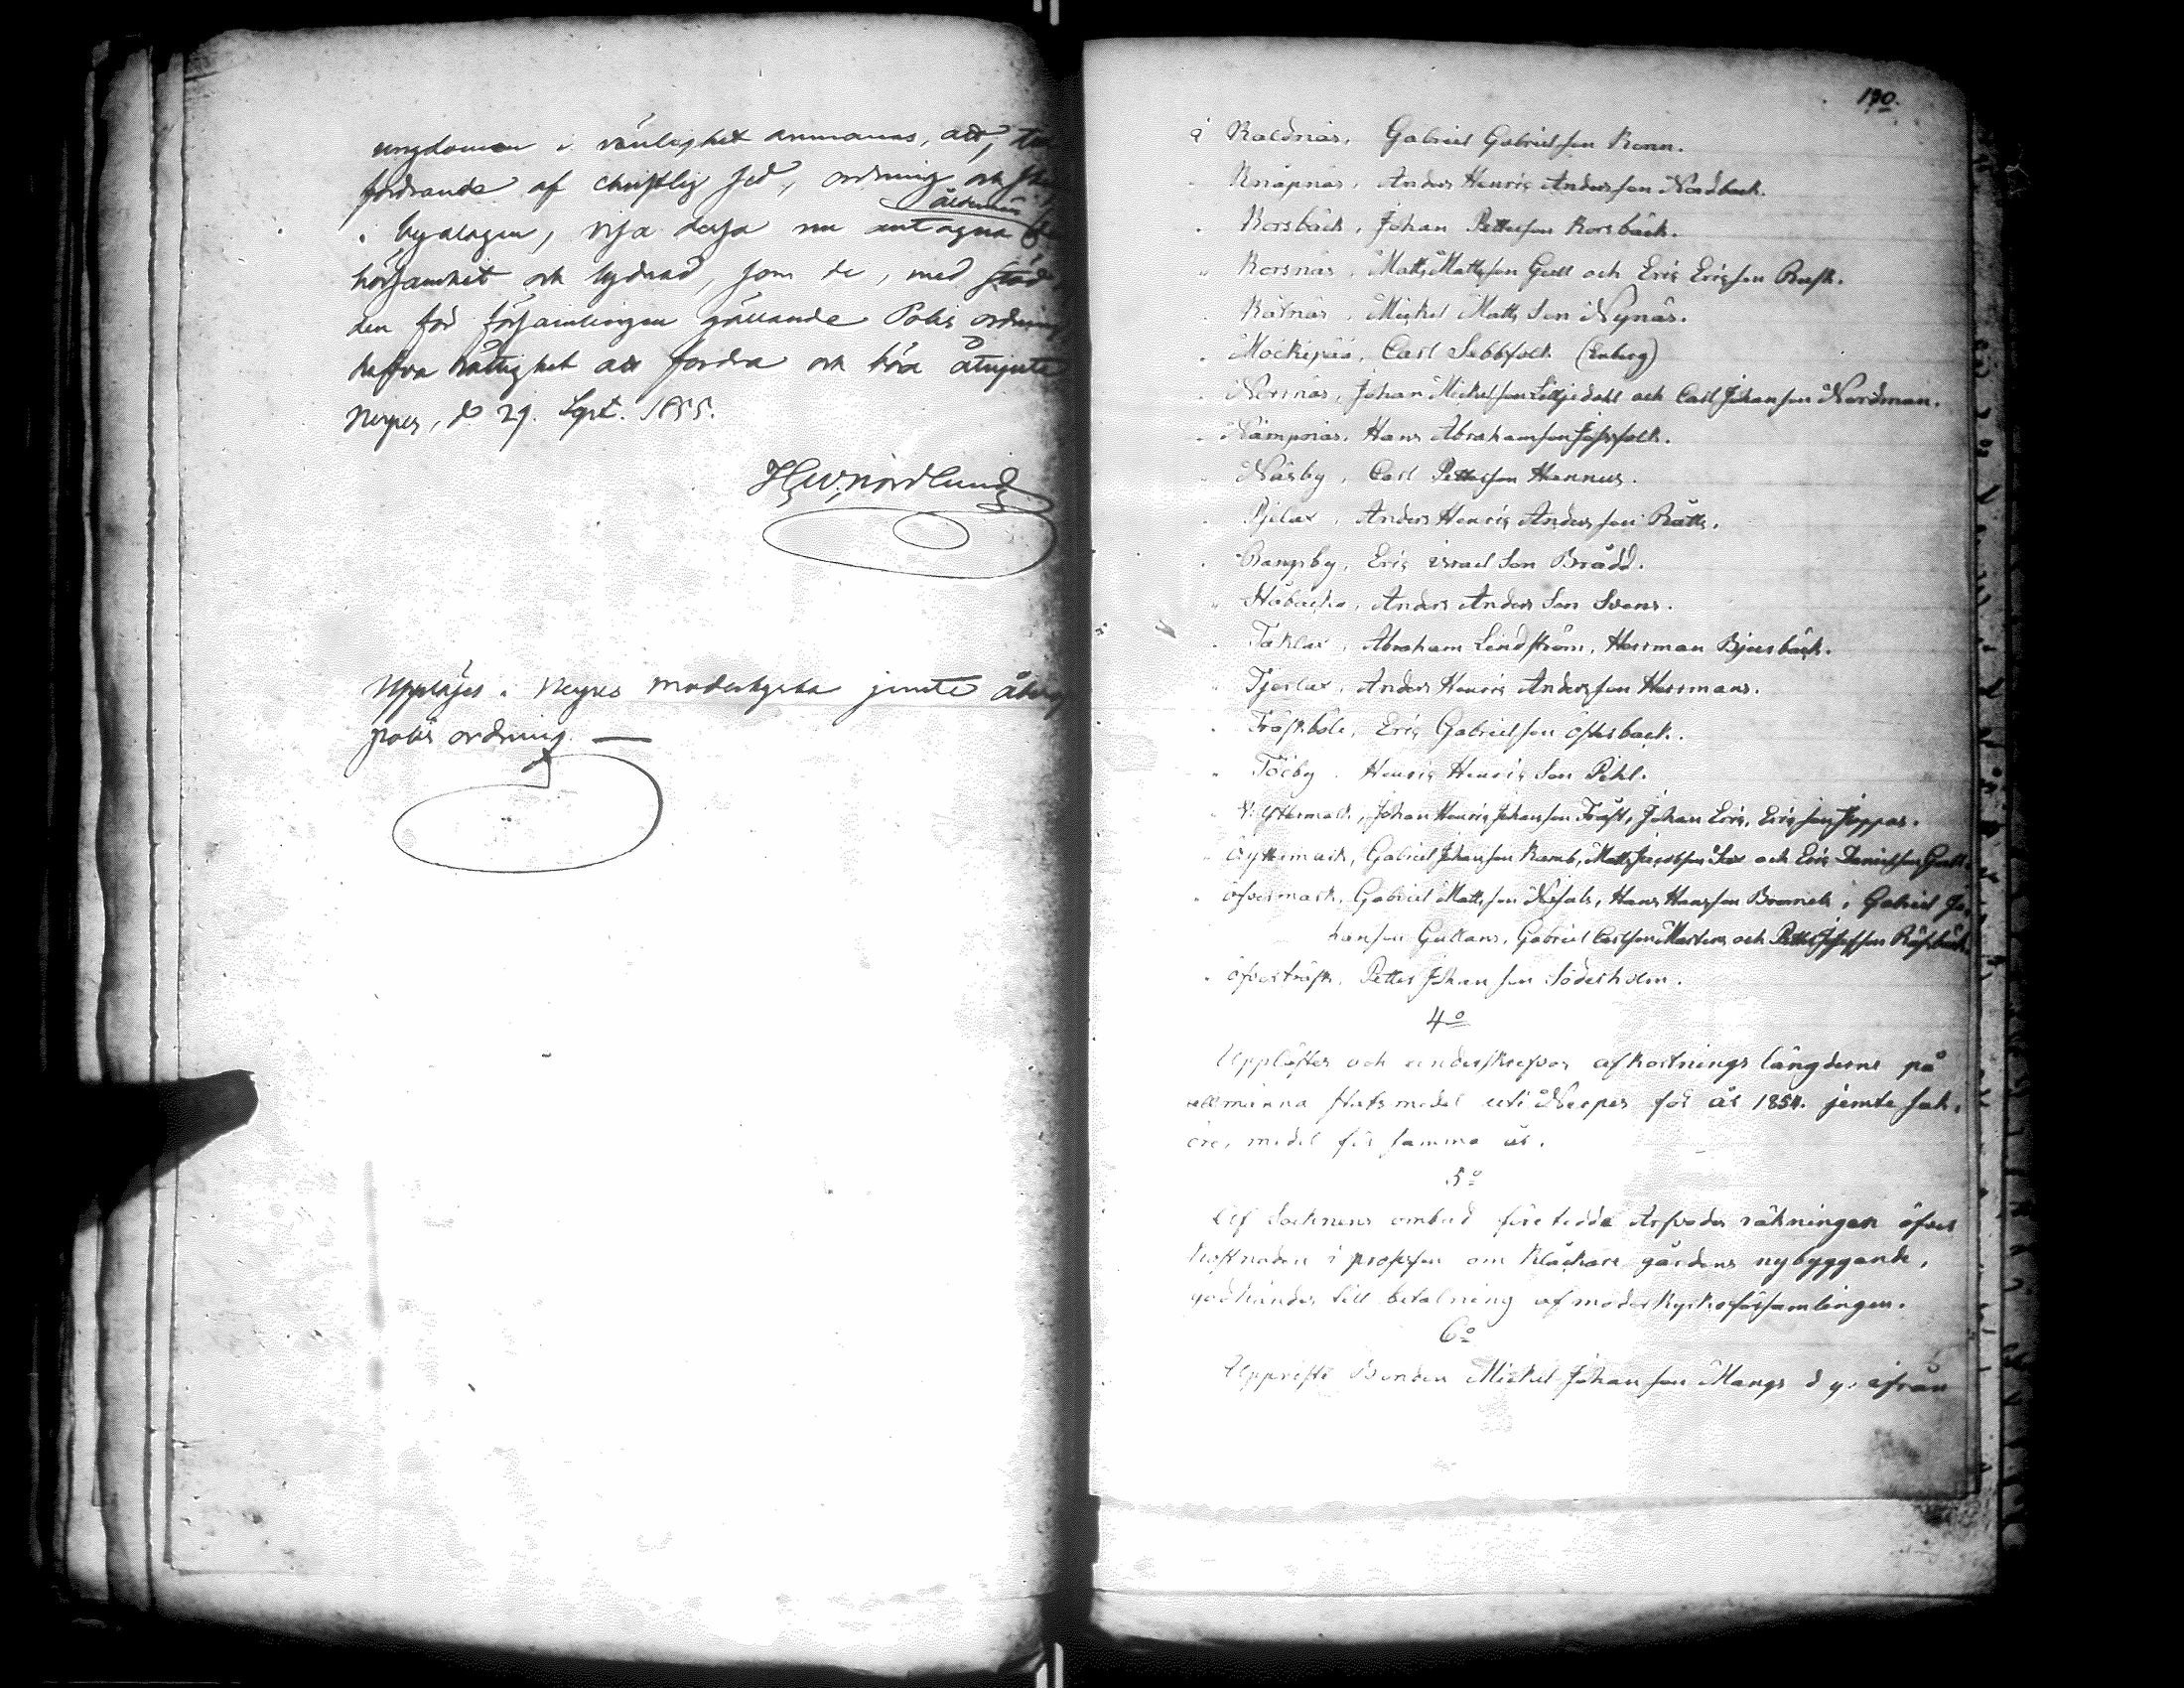 ungdomen i vänlighet anmanas, att,
fordrande af christlig sed, ordning och
åldermän
i byalagen, visa dessa nu antagna
hörsamhet och lydnad, som de, med stöd
den för församlingen gällande Polis ordning
haffva rättighet att fordra och böra åtnjuta
Nerpes, d. 29. Sept. 1855.
Nordlund
Upplästes i Nerpes moderkyrka jemte
polis ordning. —
190.
å Kaldnäs, Gabriel Gabrielsson Ronn.
" Knåpnäs, Anders Henric Andersson Nordback.
" Korsbäck, Johan Pettersson Korsbäck.
" Korsnäs, Matts Mattsson Gull och Eric Ericsson Bask.
" Råtnäs, Michel Matts Son Nynäs.
" Mockipää, Carl Sebbfolk (Enberg)
" Nornäs, Johan Michelsson Liljedahl och Carl Johansson Nordman.
" Nämpnäs, Hans Abrahamsson Jossfolk.
" Näsby, Carl Pettersson Hannus.
" Pjelax, Anders Henric Andersson Rätts.
" Rangsby, Eric Israel Son Brådd.
" Ståbacka, Anders Anders Son Svens.
" Taklax, Abraham Lindström, Herrman Bjursbäck.
" Tjerlax, Anders Henric Andersson Herrmans.
" Träskböle, Eric Gabrielsson Östesback.
" Töjby, Henric Henric Son Pihl.
" N: Yttermark, Johan Henric Johansson Träsk, Johan Eric Ericsson Joppas.
" Ö: Yttermark, Gabriel Johansson Ramb, Matts Jacobsson och Eric Danielsson Grall
" Öfvermark, Gabriel Mattsson Nissals, Hans Hansson Brännels, Gabriel Jo,
hansson Gullans, Gabriel Carlsson Mårtens och Petter Josefsson Räfsbäck
" Öfverträsk, Petter Johansson Söderholm.
4º
Upplästes och underskrefvos afkortnings längderne på
allmänna Stats medel uti Nerpes för år 1854. jemte sak,
öre, medel för samma år.
5º
Af Socknens ombud företedda Arfvodes räkningen öfver
kostnaden i processen om Klåckare gårdens nybyggande,
godkändes till betalning af moderkyrkoförsamlingen.
6º
Uppviste Bonden Michel Johansson Mangs d. y. ifrån